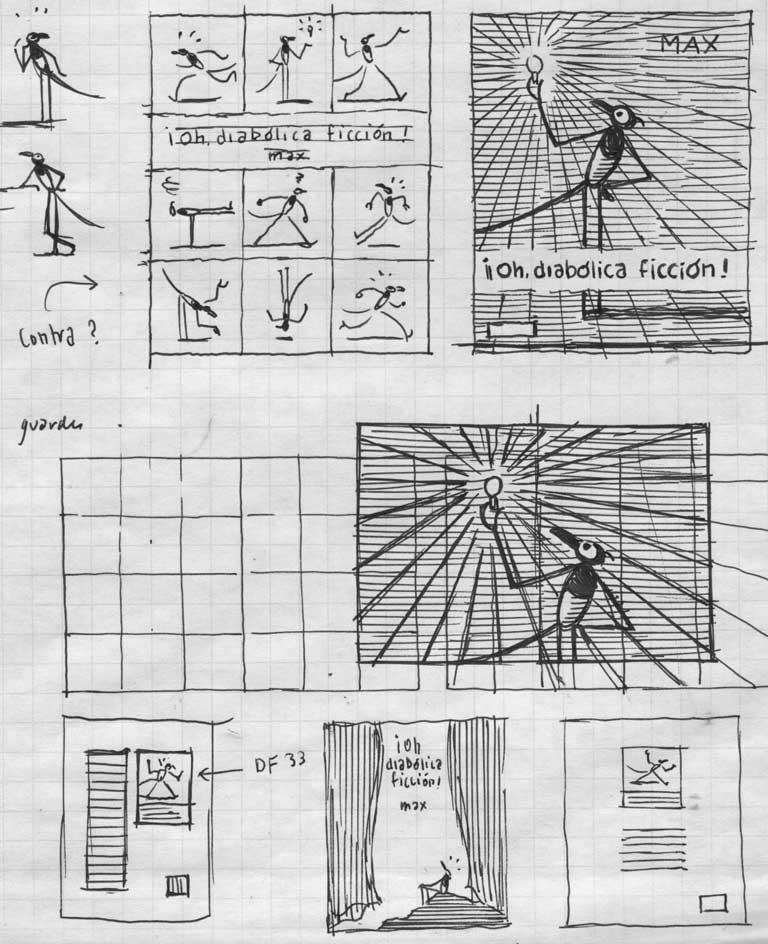 MAX
¡Oh, diabólica ficción!
max
¡Oh, diabólica ficción!
Contra?
guardas
DF 33
¡Oh
diabólica
ficción!
max